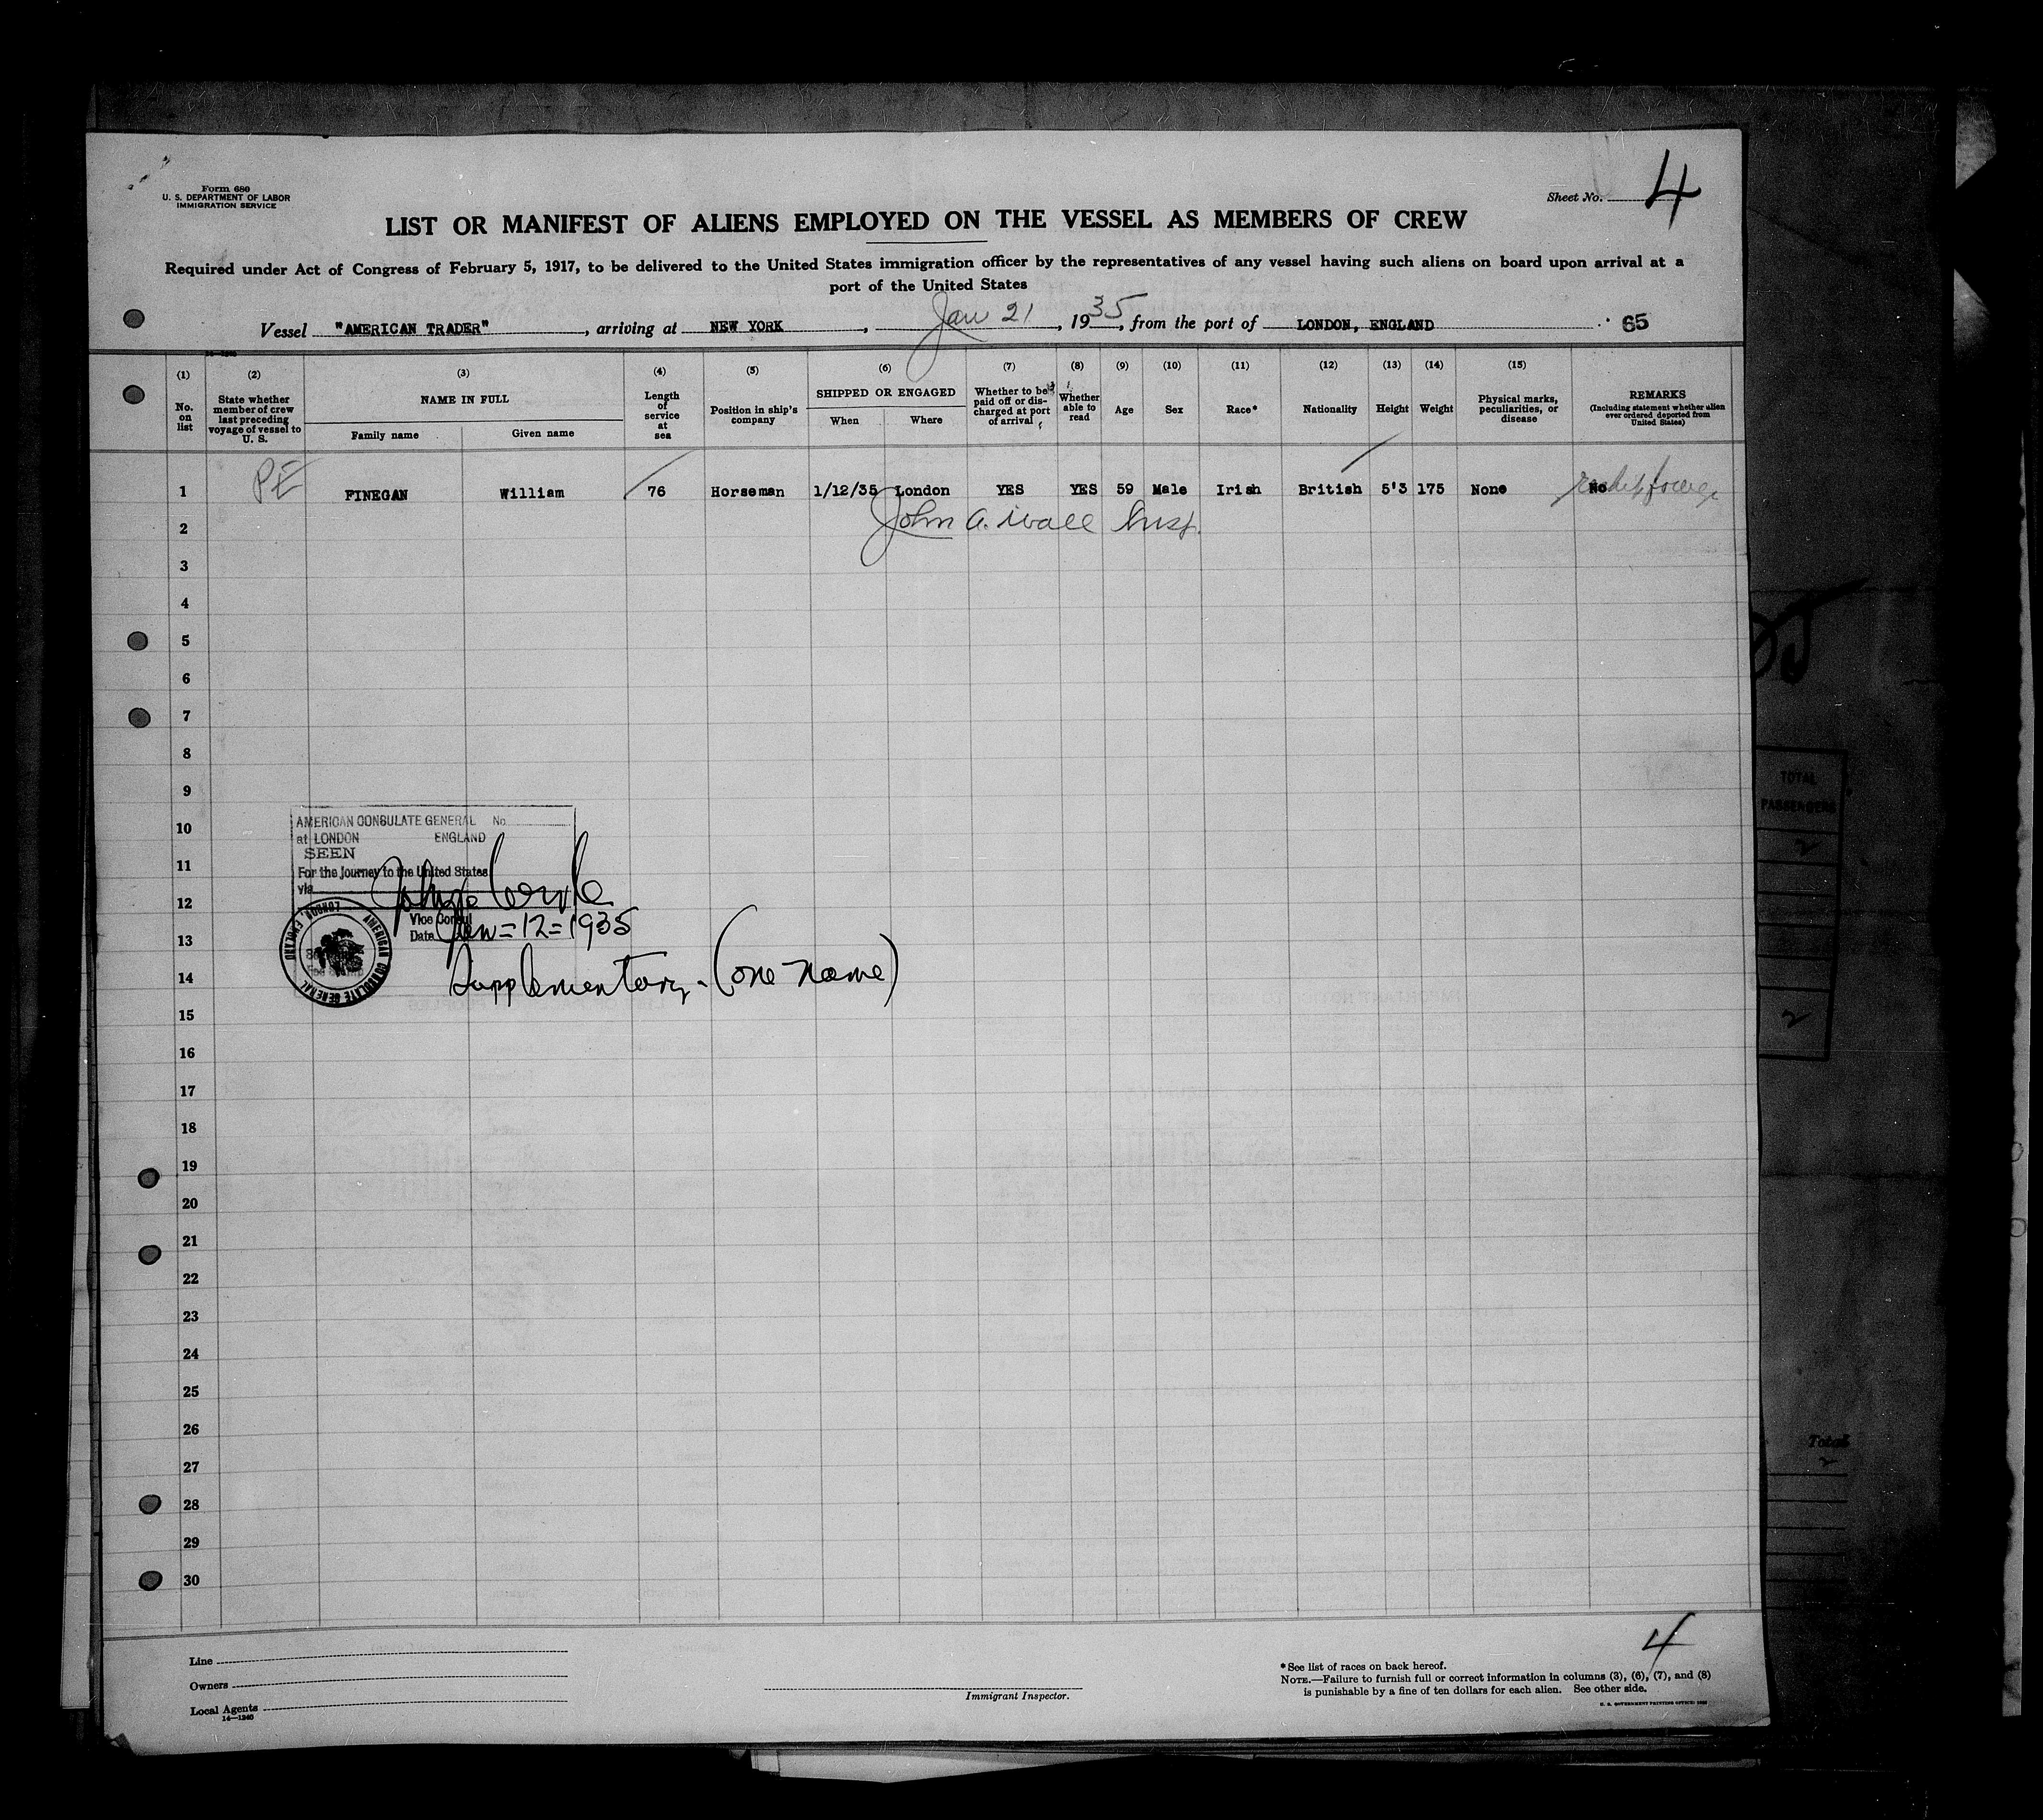 Form 680
U. S. DEPARTMENT OF LABOR
IMMIGRATION SERVICE
Sheet No. 4
LIST OR MANIFEST OF ALIENS EMPLOYED ON THE VESSEL AS MEMBERS OF CREW
Required under Act of Congress of February 5, 1917, to be delivered to the United States immigration officer by the representatives of any vessel having such aliens on board upon arrival at a
port of the United States
Vessel "AMERICAN TRADER", arriving at NEW YORK, Jan 21, 1935, from the port of LONDON, ENGLAND 65
(1) (2) (3) (4) (5) (6) (7) (8) (9) (10) (11) (12) (13) (14) (15)
No. on list
State whether member of crew last preceding voyage of vessel to U. S.
NAME IN FULL
Family name
Given name
Length of service at sea
Position in ship's company
SHIPPED OR ENGAGED
When
Where
Whether to be paid off or discharged at port of arrival
Whether able to read
Age
Sex
Race*
Nationality
Height
Weight
Physical marks, peculiarities, or disease
REMARKS
(Including statement whether alien ever ordered deported from United States)
1 PE FINEGAN William 76 Horseman 1/12/35 London YES YES 59 Male Irish British 5'3 175 None No
John A. Wall Insp.
2
3
4
5
6
7
8
9
10
11
12
13
14
15
16
17
18
19
20
21
22
23
24
25
26
27
28
29
30
AMERICAN CONSULATE GENERAL No
at LONDON ENGLAND
SEEN
For the Journey to the United States
via
Vice Consul
Date Jan=12=1935
AMERICAN CONSULATE GENERAL LONDON, ENGLAND
Supplementary - (one name)
Line
Owners
Local Agents
14—1240
Immigrant Inspector.
4
*See list of races on back hereof.
NOTE.—Failure to furnish full or correct information in columns (3), (6), (7), and (8)
is punishable by a fine of ten dollars for each alien. See other side.
TOTAL
PASSENGERS
2
2
Total
2